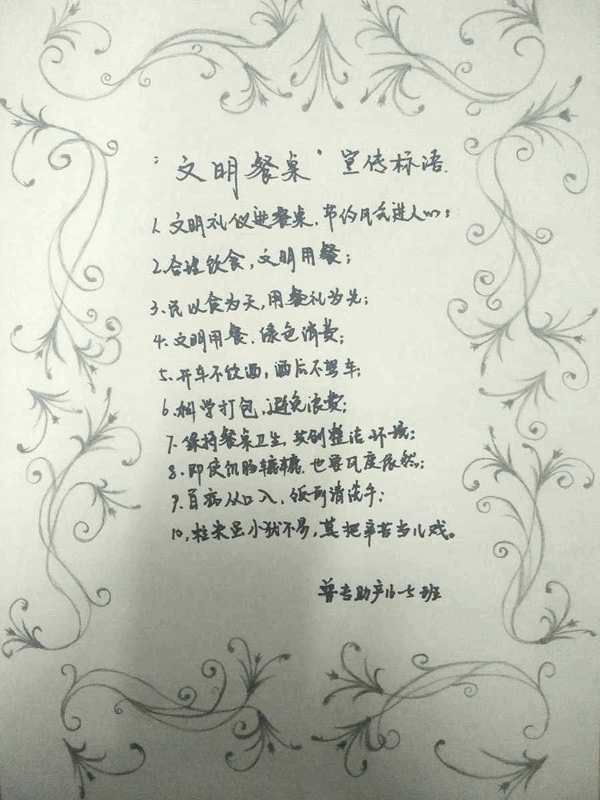 “文明餐桌”宣传标语.
1. 文明礼仪进餐桌,节约风气进人心;
2.合理饮食,文明用餐;
3.民以食为天,用餐礼为先;
4.文明用餐.绿色消费;
5.开车不饮酒,酒后不驾车;
6.科学打包,避免浪费;
7.保持餐桌卫生,共创整洁环境;
8.即使饥肠辘辘,也要风度依然;
9.百病从口入,饭前请洗手;
10,粒米虽小犹不易,莫把辛苦当儿戏。
普专助产16-5班